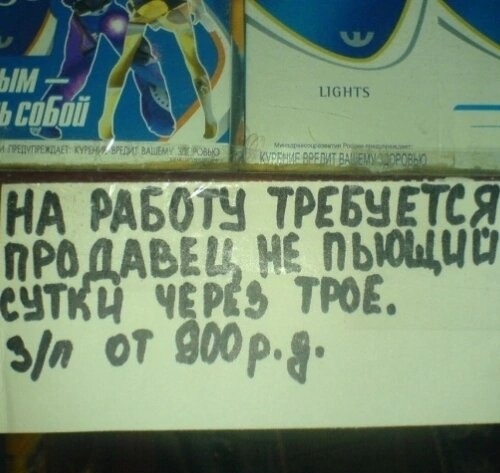 ЫМ —
Ь СОБОЙ
ПРЕДУПРЕЖДАЕТ: КУРЕНИЕ ВРЕДИТ ВАШЕМУ ЗДОРОВЬЮ
LIGHTS
КУРЕНИЕ ВРЕДИТ ВАШЕМУ ЗДОРОВЬЮ
НА РАБОТУ ТРЕБУЕТСЯ
ПРОДАВЕЦ НЕ ПЬЮЩИЙ
СУТКИ ЧЕРЕЗ ТРОЕ.
З/П ОТ 900 р. д.